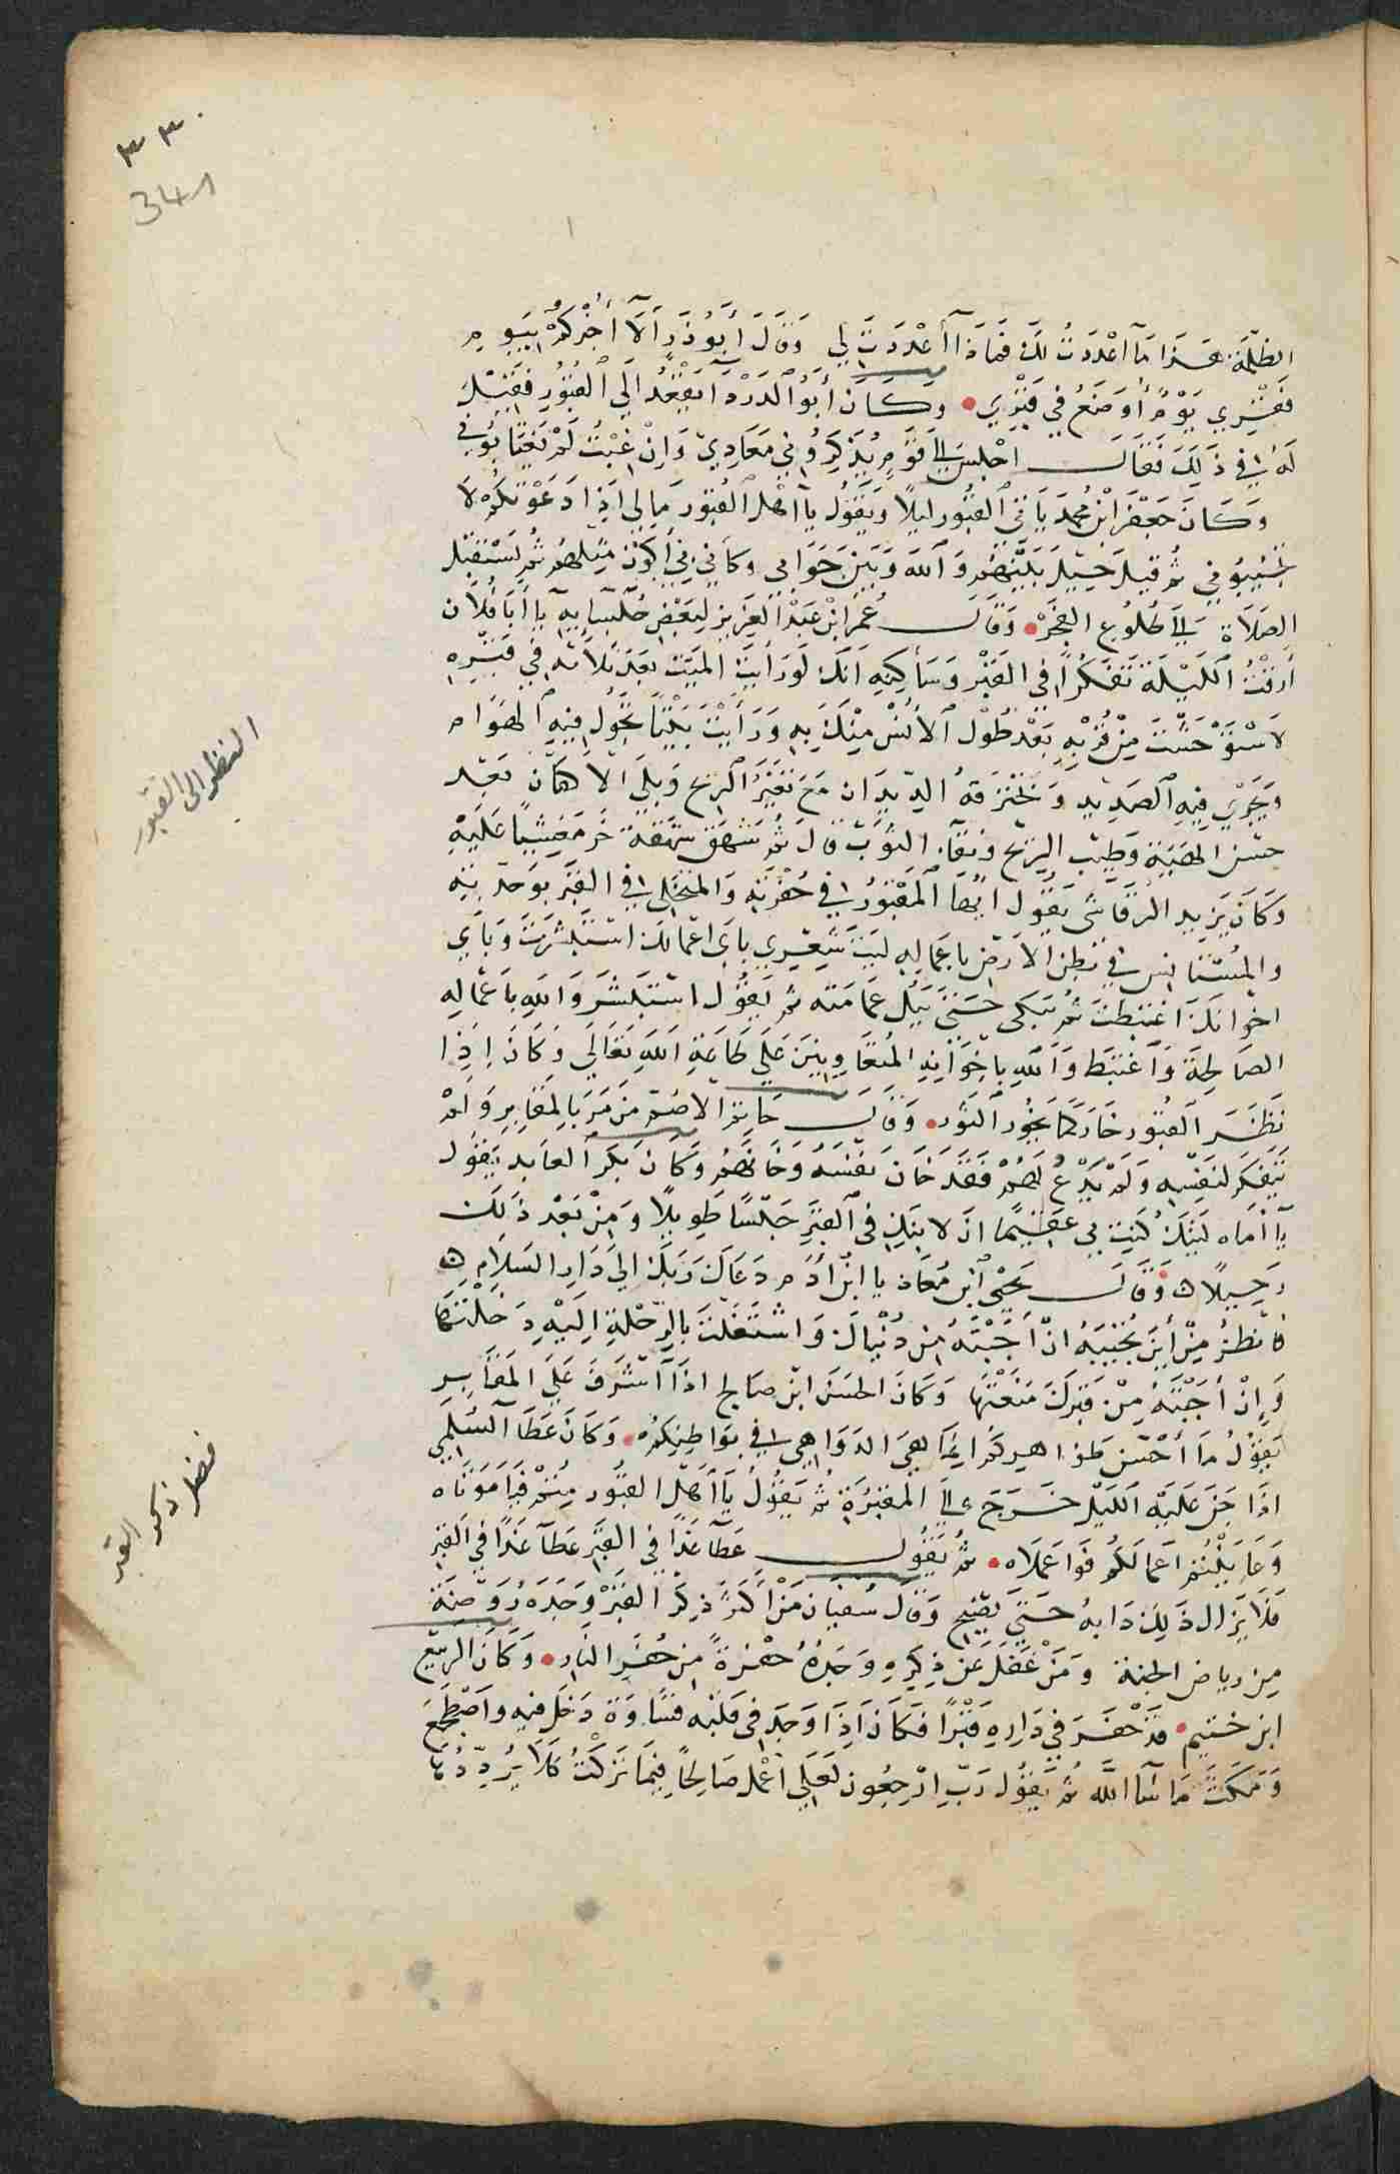 ٣٣٠
341
الظلمة هَذَا مَا اعْدَدتُ لَكَ فَمَاذَا أَعْدَدَتَ لِي وَقَالَ أَبُو ذَرٍ أَلَا أُخْبِرُكُمْ بِيَوِمِ
فَقْرِي يَوْمَ أُوضَعُ فِي قَبْرِي وكَانَ أَبُو الدَرْدَآ يَقْعُدُ إِلَى القُبُورِ فَقِيْلَ
لَهُ فِي ذَلِكَ فَقَالَ اجْلِسُ إلَى قَوْمٍ يُذَكِرُونِي مَعَادِي وَإِنْ غِبْتُ لَمْ يَغْتَابُونِي
وَكَانَ جَعْفَرَ ابْنُ مُحَمَدَ يَأتِي القُبُور ليلًا وَيَقُولُ يَآ اهْلَ القُبُور مَا لِي اذَا دَعَوْتكُمْ لَا
تُجِيْبُونِي ثُمَ يَقُولُ حِيْلَ بَيْنَهُمْ وَاللَه وَبَيْنَ جَوَابِي وكَأنِي بِي أَكُوْنُ مِثْلَهُمْ ثُمَ يَسْتَقْبِلُ
الصَلَاةَ إلَى طُلُوعِ الفَجْرِ وَقَالَ عُمَرَ ابْنُ عَبْدُ العَزِيزِ لِبَعْضِ جُلَسَايِهِ يَآ أَبَا فُلَان
أَرِقْتُ اللَيْلَةَ تَفَكُرًا فِي القَبْرِ وَسَاكِنِهِ انَكَ لَوْ رَأَيتَ المَيتَ بَعَدَ ثَلَاثَهٍ فِي قَبْرِهِ
لَاسْتَوْحَشْتَ مِنْ قُرْبِهِ بَعْدَ طُوْلِ الأُنْسِ مِنْكَ بِهِ وَرَأَيْتَ بَيْتًا تَجُولُ فِيْهِ الهَوَام
وَيَجْرِي فِيهِ الصَدِيدِ وَتَخْتَرِقهُ الدِيدَان مَعَ تَغَيُرُ الرِيحِ وَبِلَى الاكَفَان بَعْدَ
حسْنِ الهَيئةِ وَطِيْبِ الرِيْحِ ونقَآءِ الثَوْبِ قَالَ ثُمَ شَهَقَ شَهْقَةً خَرَ مَغْشِيًا عَلَيْهِ
وَكَانَ يَزِيد الرَقَاشَي يَقُول أيُهَا المَقْبُورُ فِي حُفْرَتِهِ وَالمُتَخَلِي فِي القَبْرِ بِوَحْدَتِهِ
والمُسْتَأنِس فِي بَطْنِ الأَرض بأعْمَالِهِ لَيْتَ شَعْرِي بِأيَ اعْمَالِكَ اسْتَبْشَرْتَ وَبِأَيِ
اخْوَانِكَ اغْتَبَطْتَ ثُمَ يَبْكَي حَتَى يَبُلَ عِمَامَتَه ثُمَ يَقُولُ اسْتَبْشَرَ وَاللَهِ بِأَعْمَالِهِ
الصَالِحَةِ وَاغْتَبَطَ وَاللَهِ بِاخْوَانِهِ المُتعَاوِنِينَ عَلَى طَاعَةِ اللَهِ تَعَالَى وَكَانَ إذَا
نَظَرَ القبُورَ خَارَ كَمَا يَخُوْرُ الثَوْرُ وَقَالَ حَاتِمَ الاصَمُ مَنْ مَرَ بِالمَقَابِرِ وَلَمْ
يَتَفكَر لنَفْسِه وَلَمْ يَدْعُ لَهُمْ فَقَد خَانَ نَفْسَهُ وَخَانَهُمْ وَكَانَ بَكَرَ العَابِدِ يَقُولُ
يَآ أمَاه لَيْتَكِ كُنْتِ بِي عَقِيْمًا انَ لابْنِكِ فِي القَبْرِ حَبْسًا طَوِيلًا وَمِنْ بَعْدِ ذَلِكَ
رَحِيلًا ه وَقَالَ يَحْيَى ابْنُ مُعَاذ يا ابْنَ ادَم دَعَاكَ رَبُكَ الىَ دَارِ السَلَامِ ه
فانْظُرْ مِنْ أَيْنَ تُجِيْبَهُ انْ أَجَبْتَهُ مِن دُنْيَاكَ وَاشْتَغَلْتَ بِالرِحْلَةِ إِلَيْهِ دَخَلْتَهَا
وَإنْ أجَبْتَهُ مِنْ قَبْرِكَ مُنِعْتَهَا وَكَانَ الحَسَنَ ابْن صَالِحِ اذَا أشْرَفَ عَلَى المَقَابِرِ
يَقُوْلُ مَا أَحْسَنَ ظَوَاهِرِكُمْ انمَا هِيَ الدَوَاهِي فِي بَوَاطِنِكُمْ وَكَانَ عَطَا السُلَمِي
اذَا جَنَ عَلَيْهِ اللَيْل خَرَجَ إلَى المَقْبُرَةِ ثُمَ يَقُولُ يَآ اهْلَ القُبُورِ مُتُمْ فَيَا مَوْتَاه
وَعَايَنْتُمْ أعمَالَكُمْ فَوَا عَمَلَاه ثُمَ يَقُولُ عَطَآ غَدًا فِي القَبْرِ عَطَآ غَدًا فِي القَبْرِ
فَلَا يَزَال ذَلِكَ دَابهُ حَتَى يُصْبِحَ وَقَالَ سُفيَان مَنْ أَكْثَرَ ذِكْرَ القَبْرَ وَجَدَهُ رُوَضَةً
مِن ريَاض الجَنَةِ وَمَنْ غَفَلَ عَنْ ذِكْرِهِ وَجَدَهُ حُفْرَةً مِنْ حُفَرِ النَارِ وَكَانَ الرَبيْع
ابن خثيم قَدْ حْفَرَ فِي دَارِهِ قَبْرًا فَكَانَ اذَا وَجَدَ فِي قَلْبِهِ قَسَاوَةً دَخَلَ فِيهِ وَاضْطَجَعَ
وَمَكَثَ مَا شَآ اللَه ثُمَ يَقُولُ رَبِ ارْجِعُون لَعَلِي أعْمَل صَالِحًا فِيمَا تَرَكْتُ كَلَا يُرَدِدُهَا
النظر الى القبور
فضل ذكر القبر